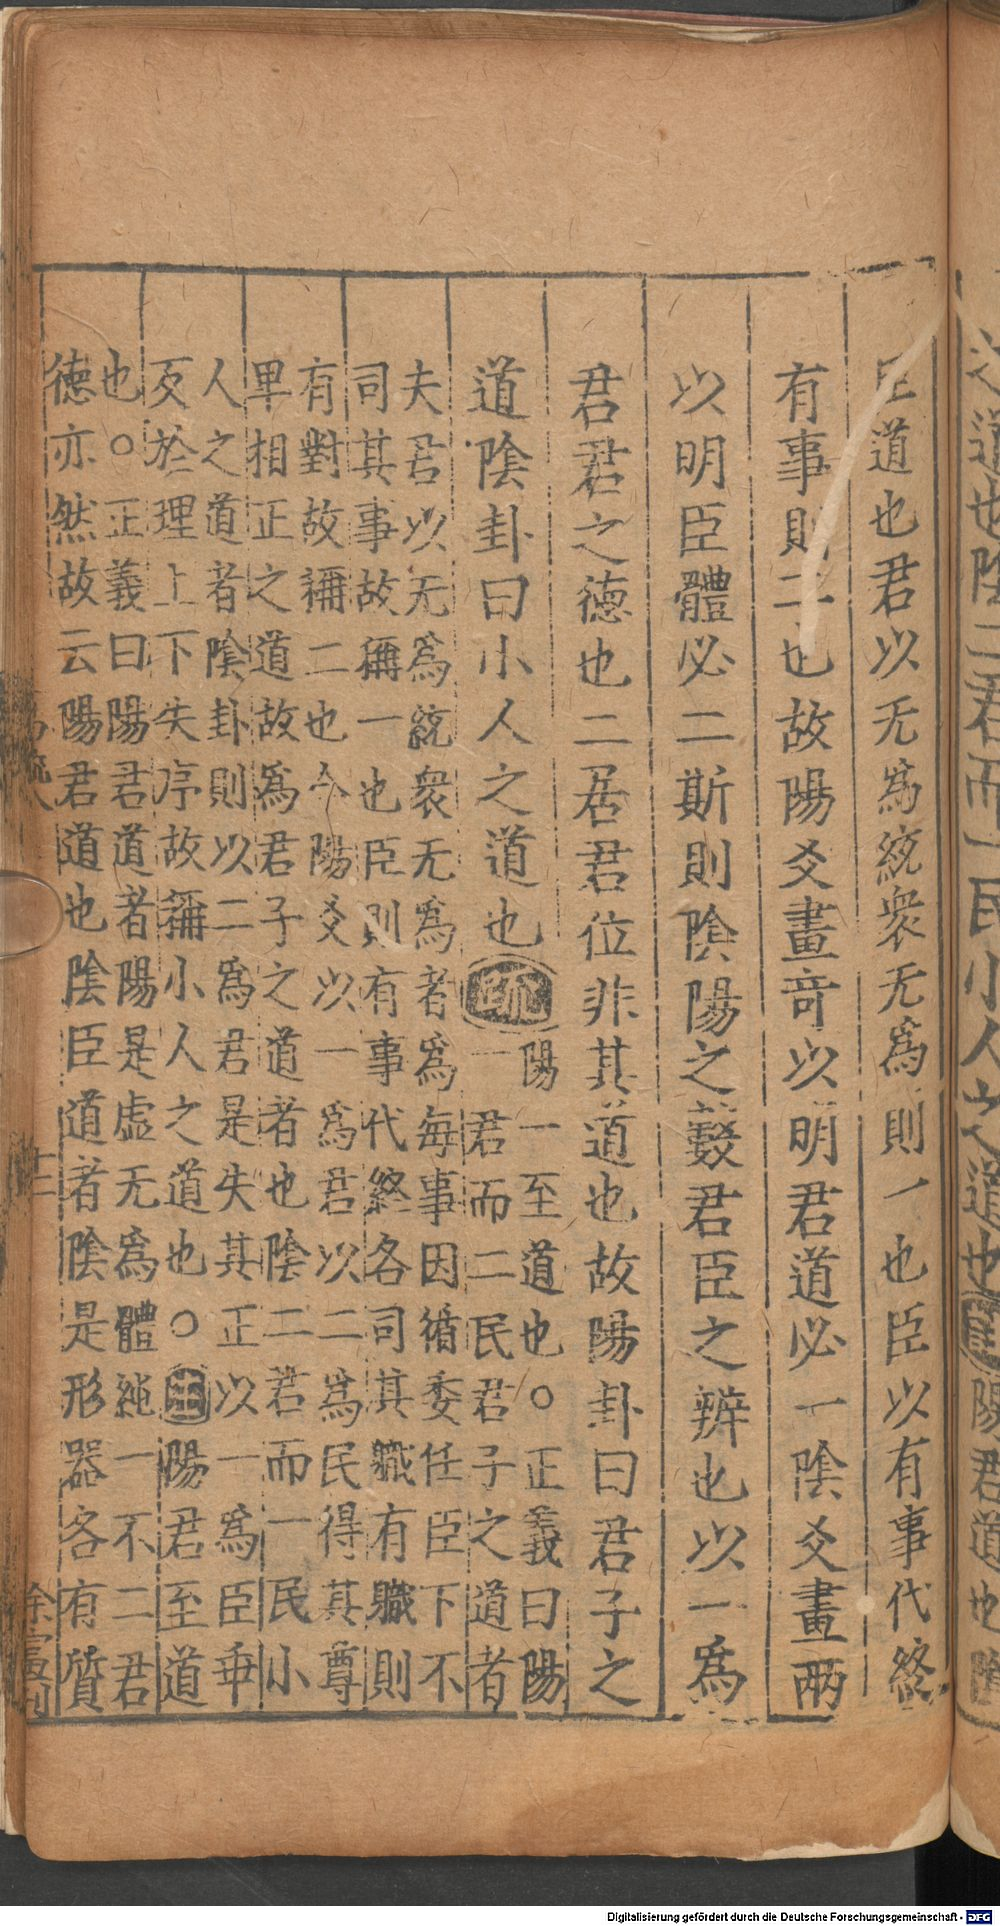 臣道也君以无爲統衆无爲則一也臣以有事代終
有事則二也故陽爻畫竒以明君道必一陰爻畫兩
以明臣體必二斯則陰陽之數君臣之辨也以一爲
君君之德也二居君位非其道也故陽卦曰君子之
道陰卦曰小人之道也疏陽一至道也○正義曰陽
一君而二民君子之道者
夫君以无爲統衆无爲者爲每事因循委任臣下不
司其事故稱一也臣則有事代終各司其職有職則
有對故稱二也今陽爻以一爲君以二爲民得其尊
卑相正之道故爲君子之道者也陰二君而一民小
人之道者陰卦則以二爲君是失其正以一爲臣乖
反於理上下失序故稱小人之道也○注陽君至道
也○正義曰陽君道者陽是虛无爲體純一不二君
德亦然故云陽君道也陰臣道者陰是形器各有質
易疏八
十二
余富刊
之道也陰二君而一民小人之道也注陽君道也陰
Digitalisierung gefördert durch die Deutsche Forschungsgemeinschaft - DFG